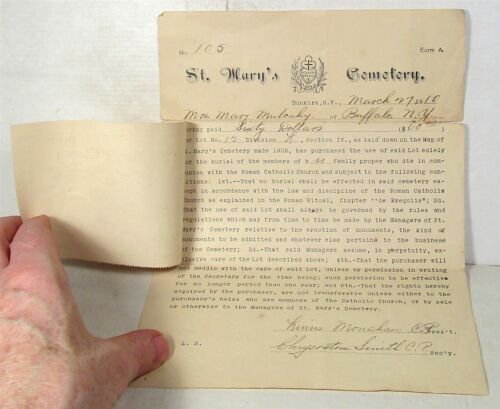 No. 105 Form A.
St. Mary's Cemetery.
Dunkirk, N.Y., March 29 1910
Mrs Mary Mulcahy of Buffalo N.Y.
having paid Sixty Dollars ($60
for Lot No. 12 Division L, Section IV., as laid down on the Map of
St. Mary's Cemetery made 1902, has purchased the use of said Lot solely
for the burial of the members of her family proper who die in com-
munion with the Roman Catholic Church and subject to the following
conditions: 1st.--That no burial shall be effected in said cemetery ex-
cept in accordance with the law and discipline of the Roman Catholic
Church as explained in the Roman Ritual, Chapter "de Exequiis"; 2d.
That the use of said Lot shall always be governed by the rules and
regulations which may from time to time be made by the Managers of St.
Mary's Cemetery relative to the erection of monuments, the kind of
monuments to be admitted and whatever else pertains to the business
of the Cemetery; 3d.-That said Managers assume, in perpetuity, ex-
clusive care of the Lot described above; 4th.-That the purchaser will
not meddle with the care of said Lot, unless by permission in writing
of the secretary for the time being; such permission to be effective
for no longer period than one year; and 5th.-That the rights hereby
acquired by the purchaser, are not transferable unless either to the
purchaser's heirs who are members of the Catholic Church, or by sale
or otherwise to the Managers of St. Mary's Cemetery.
Linus Monahan C.P. Pres't.
L. S. Chrysostom Smith C.P. Sec'y.